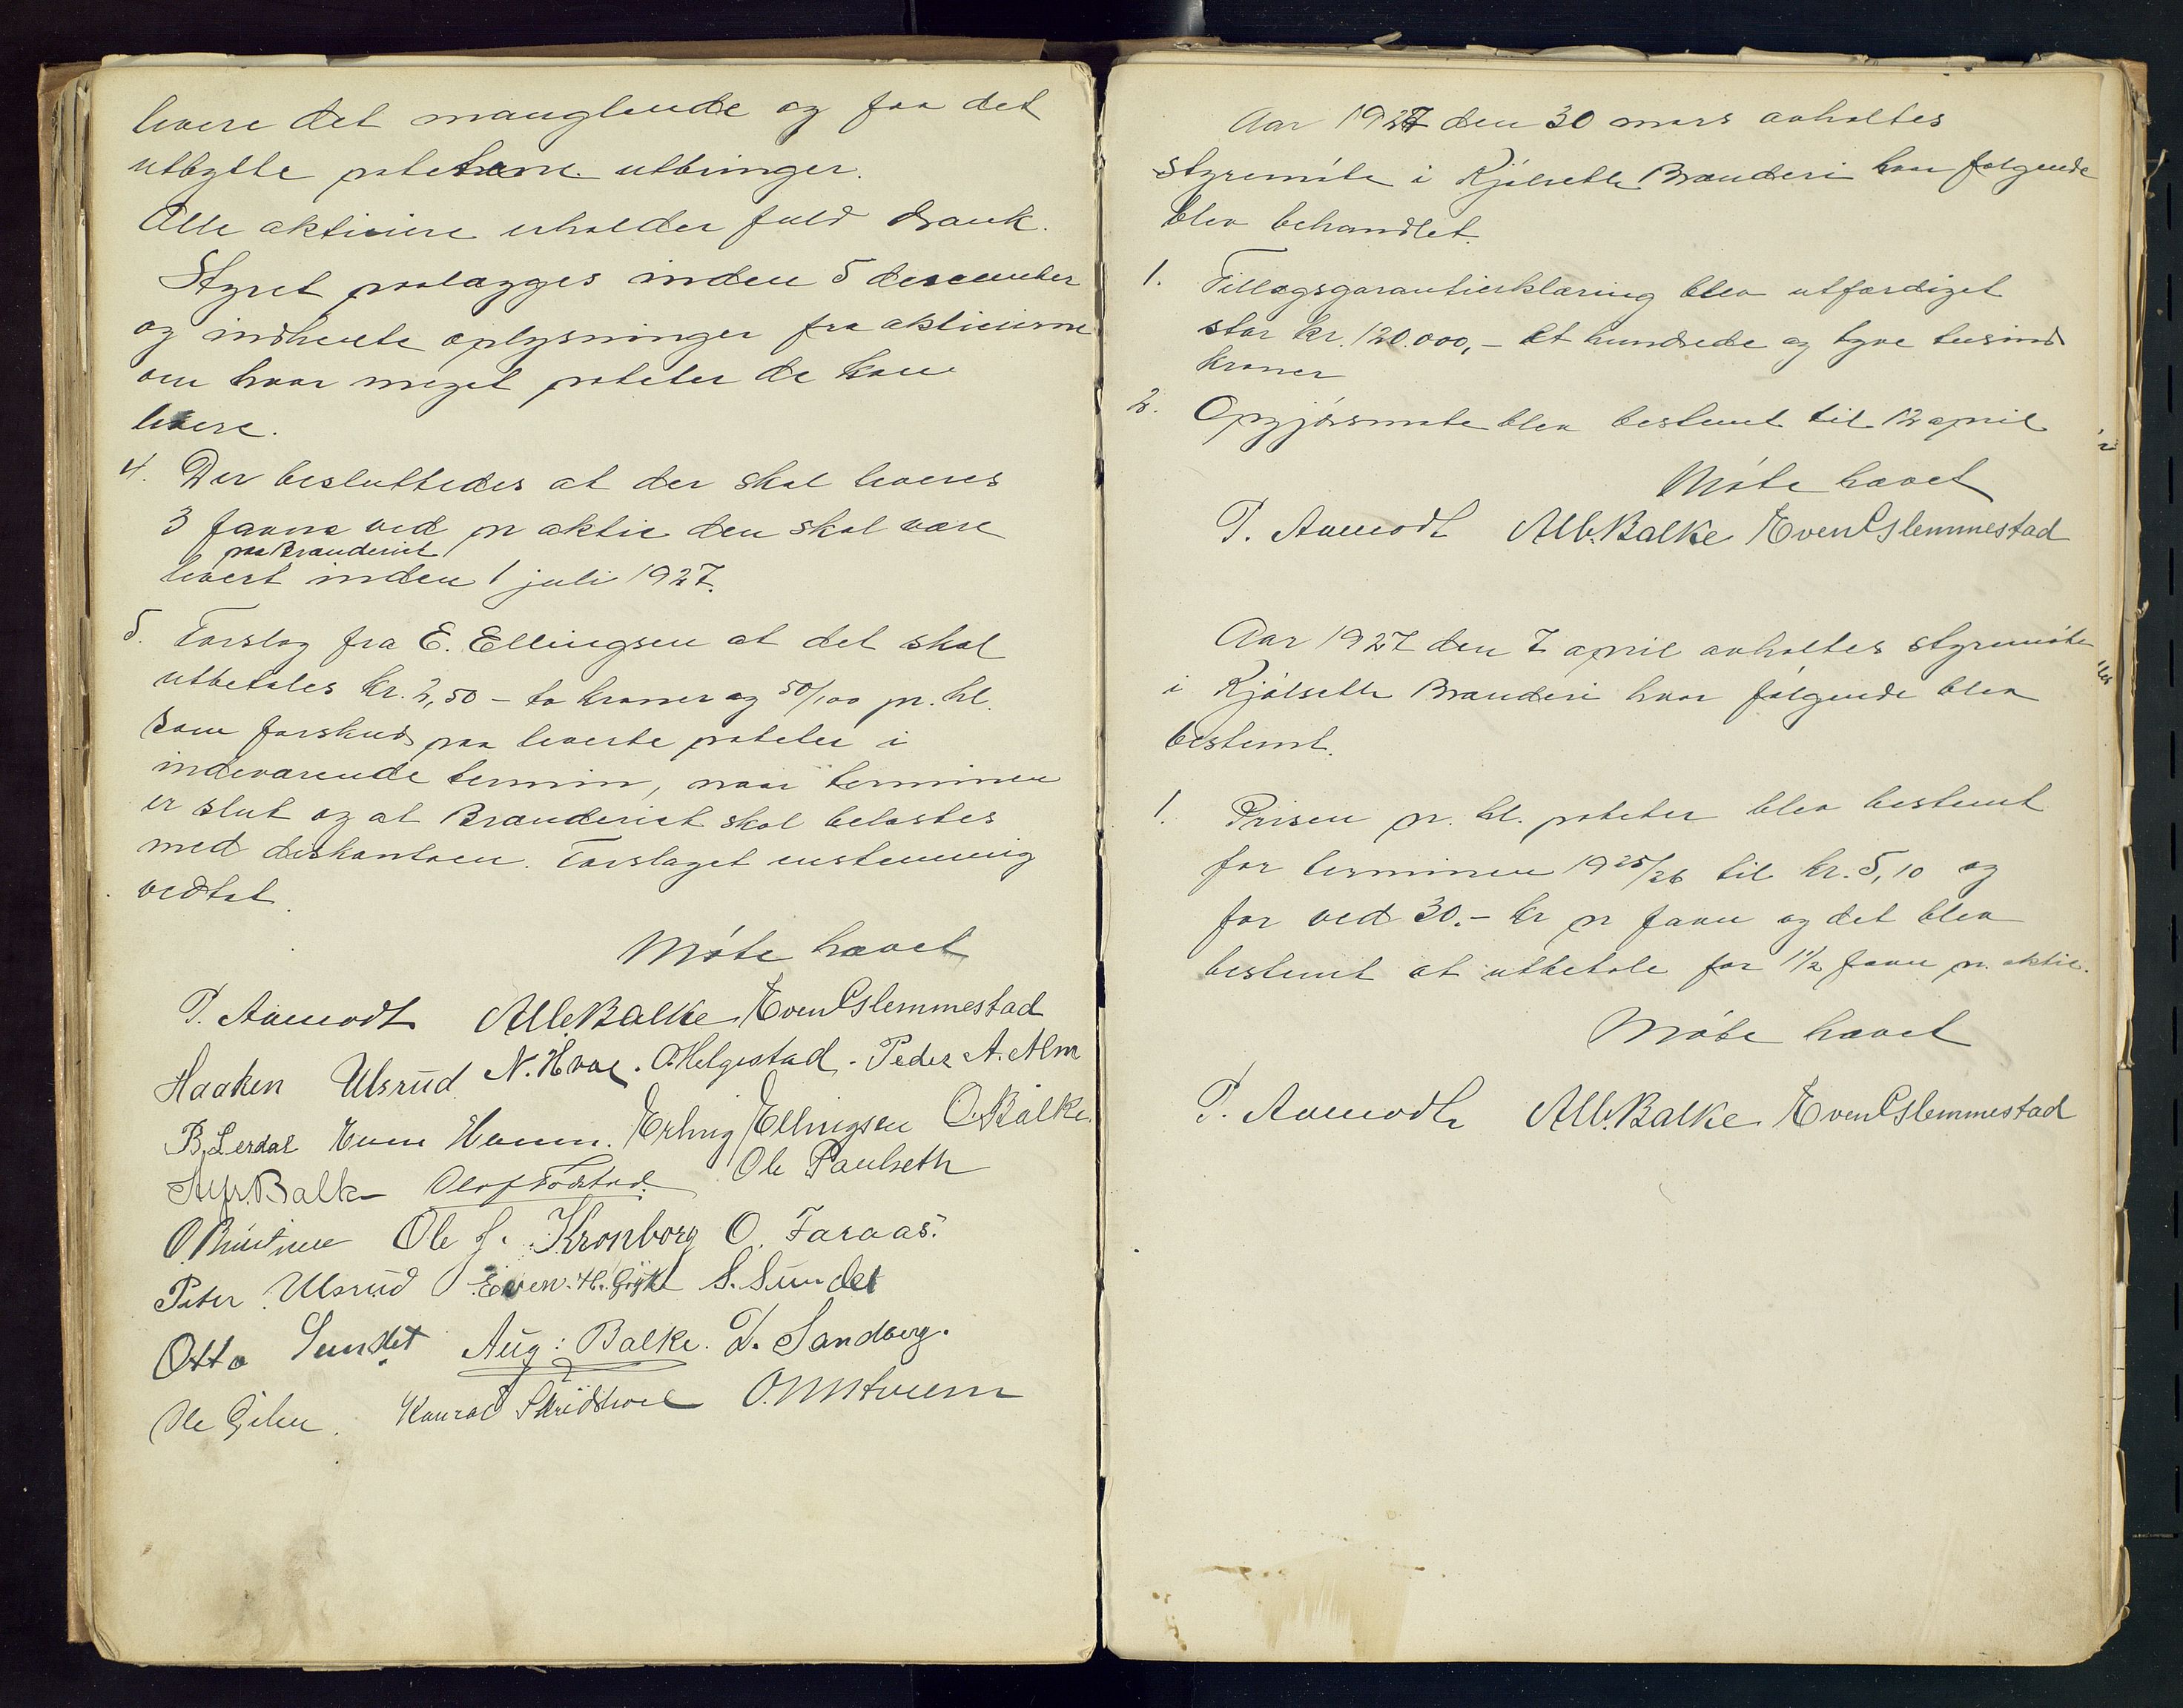 levere det manglende og faa det
utbytte potetene utbringer.
Alle aktiviere erholder fuld drank.
Styret paalægges inden 5 desember
og indhente oplysninger fra aktieierne
om hvor meget poteter de kan
levere.
4. Der besluttedes at der skal leveres
3 favne ved pr aktie den skal være
paa Brænderiet
levert inden 1 juli 1927.
5. Forslag fra E. Ellingsen at det skal
utbetales kr. 2,50 - to kroner og 50/100 pr. hl.
som forskud paa leverte poteter i
indeværende termin, naar terminen
er slut og at Brænderiet skal belastes
med diskontoen. Forslaget enstemmig
vedtat.
Møte hævet
P. Aamodt Alb. Balke Even Eslemmestad
Haaken Ulsrud N. Hval. O Helgestad. Peder A. Alm
B. Lerdal Even Erling Ellingsen O. Balke.
Alfr. Balke Ole Paulseth
Ole J. Kronborg O. Faraas.
Peter Ulsrud Even. H. S. Sundet
Otto Sundet Aug: Balke. D. Sandberg.
Ole Konrad
Aar 1927 den 30 mars avholtes
styremöte i Kjölseth Brænderi hvor følgende
blev behandlet.
1. Tillægsgarantierklæring blev utfærdiget
stor kr. 120.000,- et hundrede og tyve tusind
kroner
2. Opgjörsmöte blev bestemt til 12 april
Møte hævet
P. Aamodt Alb. Balke Even Eslemmestad
Aar 1927 den 7 april avholtes styremöte
i Kjölseth Brænderi hvor følgende blev
bestemt.
1. Prisen pr. hl. poteter blev bestemt
for terminen 1925/26 til kr. 5,10 og
for ved 30.- kr pr favn og det blev
bestemt at utbetale for 1½ favn pr. aktie.
Møte hævet
P. Aamodt Alb. Balke Even Eslemmestad